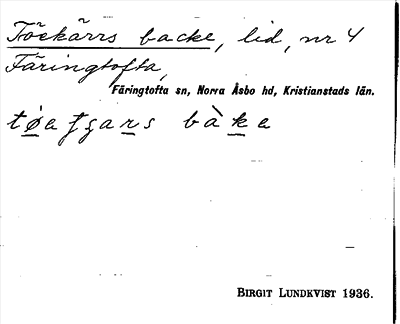 Töekärrs backe, lid, nr 4
Färingtofta,
Färingtofta sn, Norra Åsbo hd, Kristianstads län.
BIRGIT LUNDKVIST 1936.